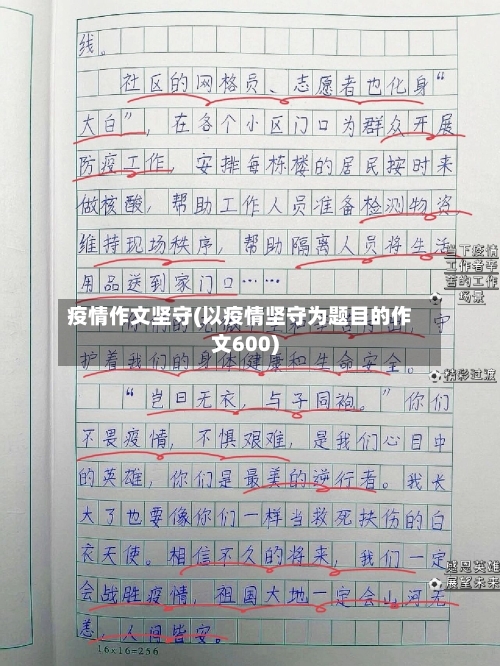 线。
社区的网格员、志愿者也化身“
大白”，在各个小区门口为群众开展
防疫工作，安排每栋楼的居民按时来
做核酸，帮助工作人员准备检测物资
维持现场秩序，帮助隔离人员将生活
用品送到家门口……
当下疫情
工作者辛
苦的工作
场景
疫情作文坚守(以疫情坚守为题目的作
文600)
守
护着我们的身体健康和生命安全。
精彩过渡
“岂曰无衣，与子同袍。”你们
不畏疫情，不惧艰难，是我们心目中
的英雄，你们是最美的逆行者。我长
大了也要像你们一样当救死扶伤的白
衣天使。相信不久的将来，我们一定
会战胜疫情，祖国大地一定会山河无
恙，人间皆安。
感恩英雄
展望未来
16×16=256